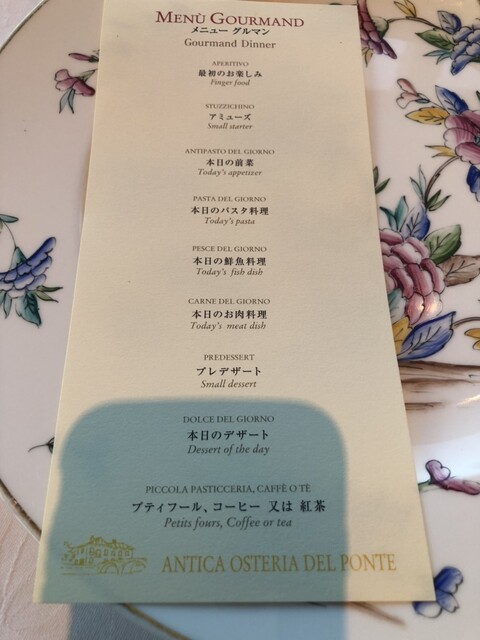 MENÙ GOURMAND
メニュー グルマン
Gourmand Dinner
APERITIVO
最初のお楽しみ
Finger food
STUZZICHINO
アミューズ
Small starter
ANTIPASTO DEL GIORNO
本日の前菜
Today's appetizer
PASTA DEL GIORNO
本日のパスタ料理
Today's pasta
PESCE DEL GIORNO
本日の鮮魚料理
Today's fish dish
CARNE DEL GIORNO
本日のお肉料理
Today's meat dish
PREDESSERT
プレデザート
Small dessert
DOLCE DEL GIORNO
本日のデザート
Dessert of the day
PICCOLA PASTICCERIA, CAFFÈ O TÈ
プティフール、コーヒー 又は 紅茶
Petits fours, Coffee or tea
ANTICA OSTERIA DEL PONTE